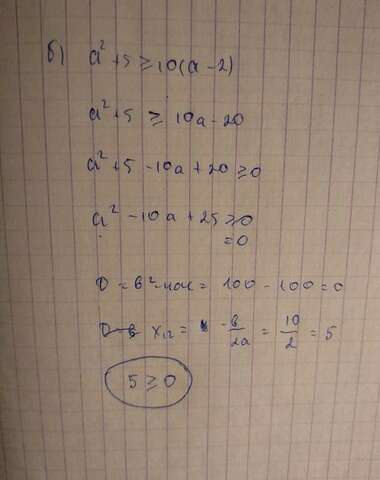 б) a² + 5 ≥ 10(a - 2)
a² + 5 ≥ 10a - 20
a² + 5 - 10a + 20 ≥ 0
a² - 10a + 25 ≥ 0
= 0
D = b² - 4ac = 100 - 100 = 0
x₁,₂ = -b/2a = 10/2 = 5
5 ≥ 0